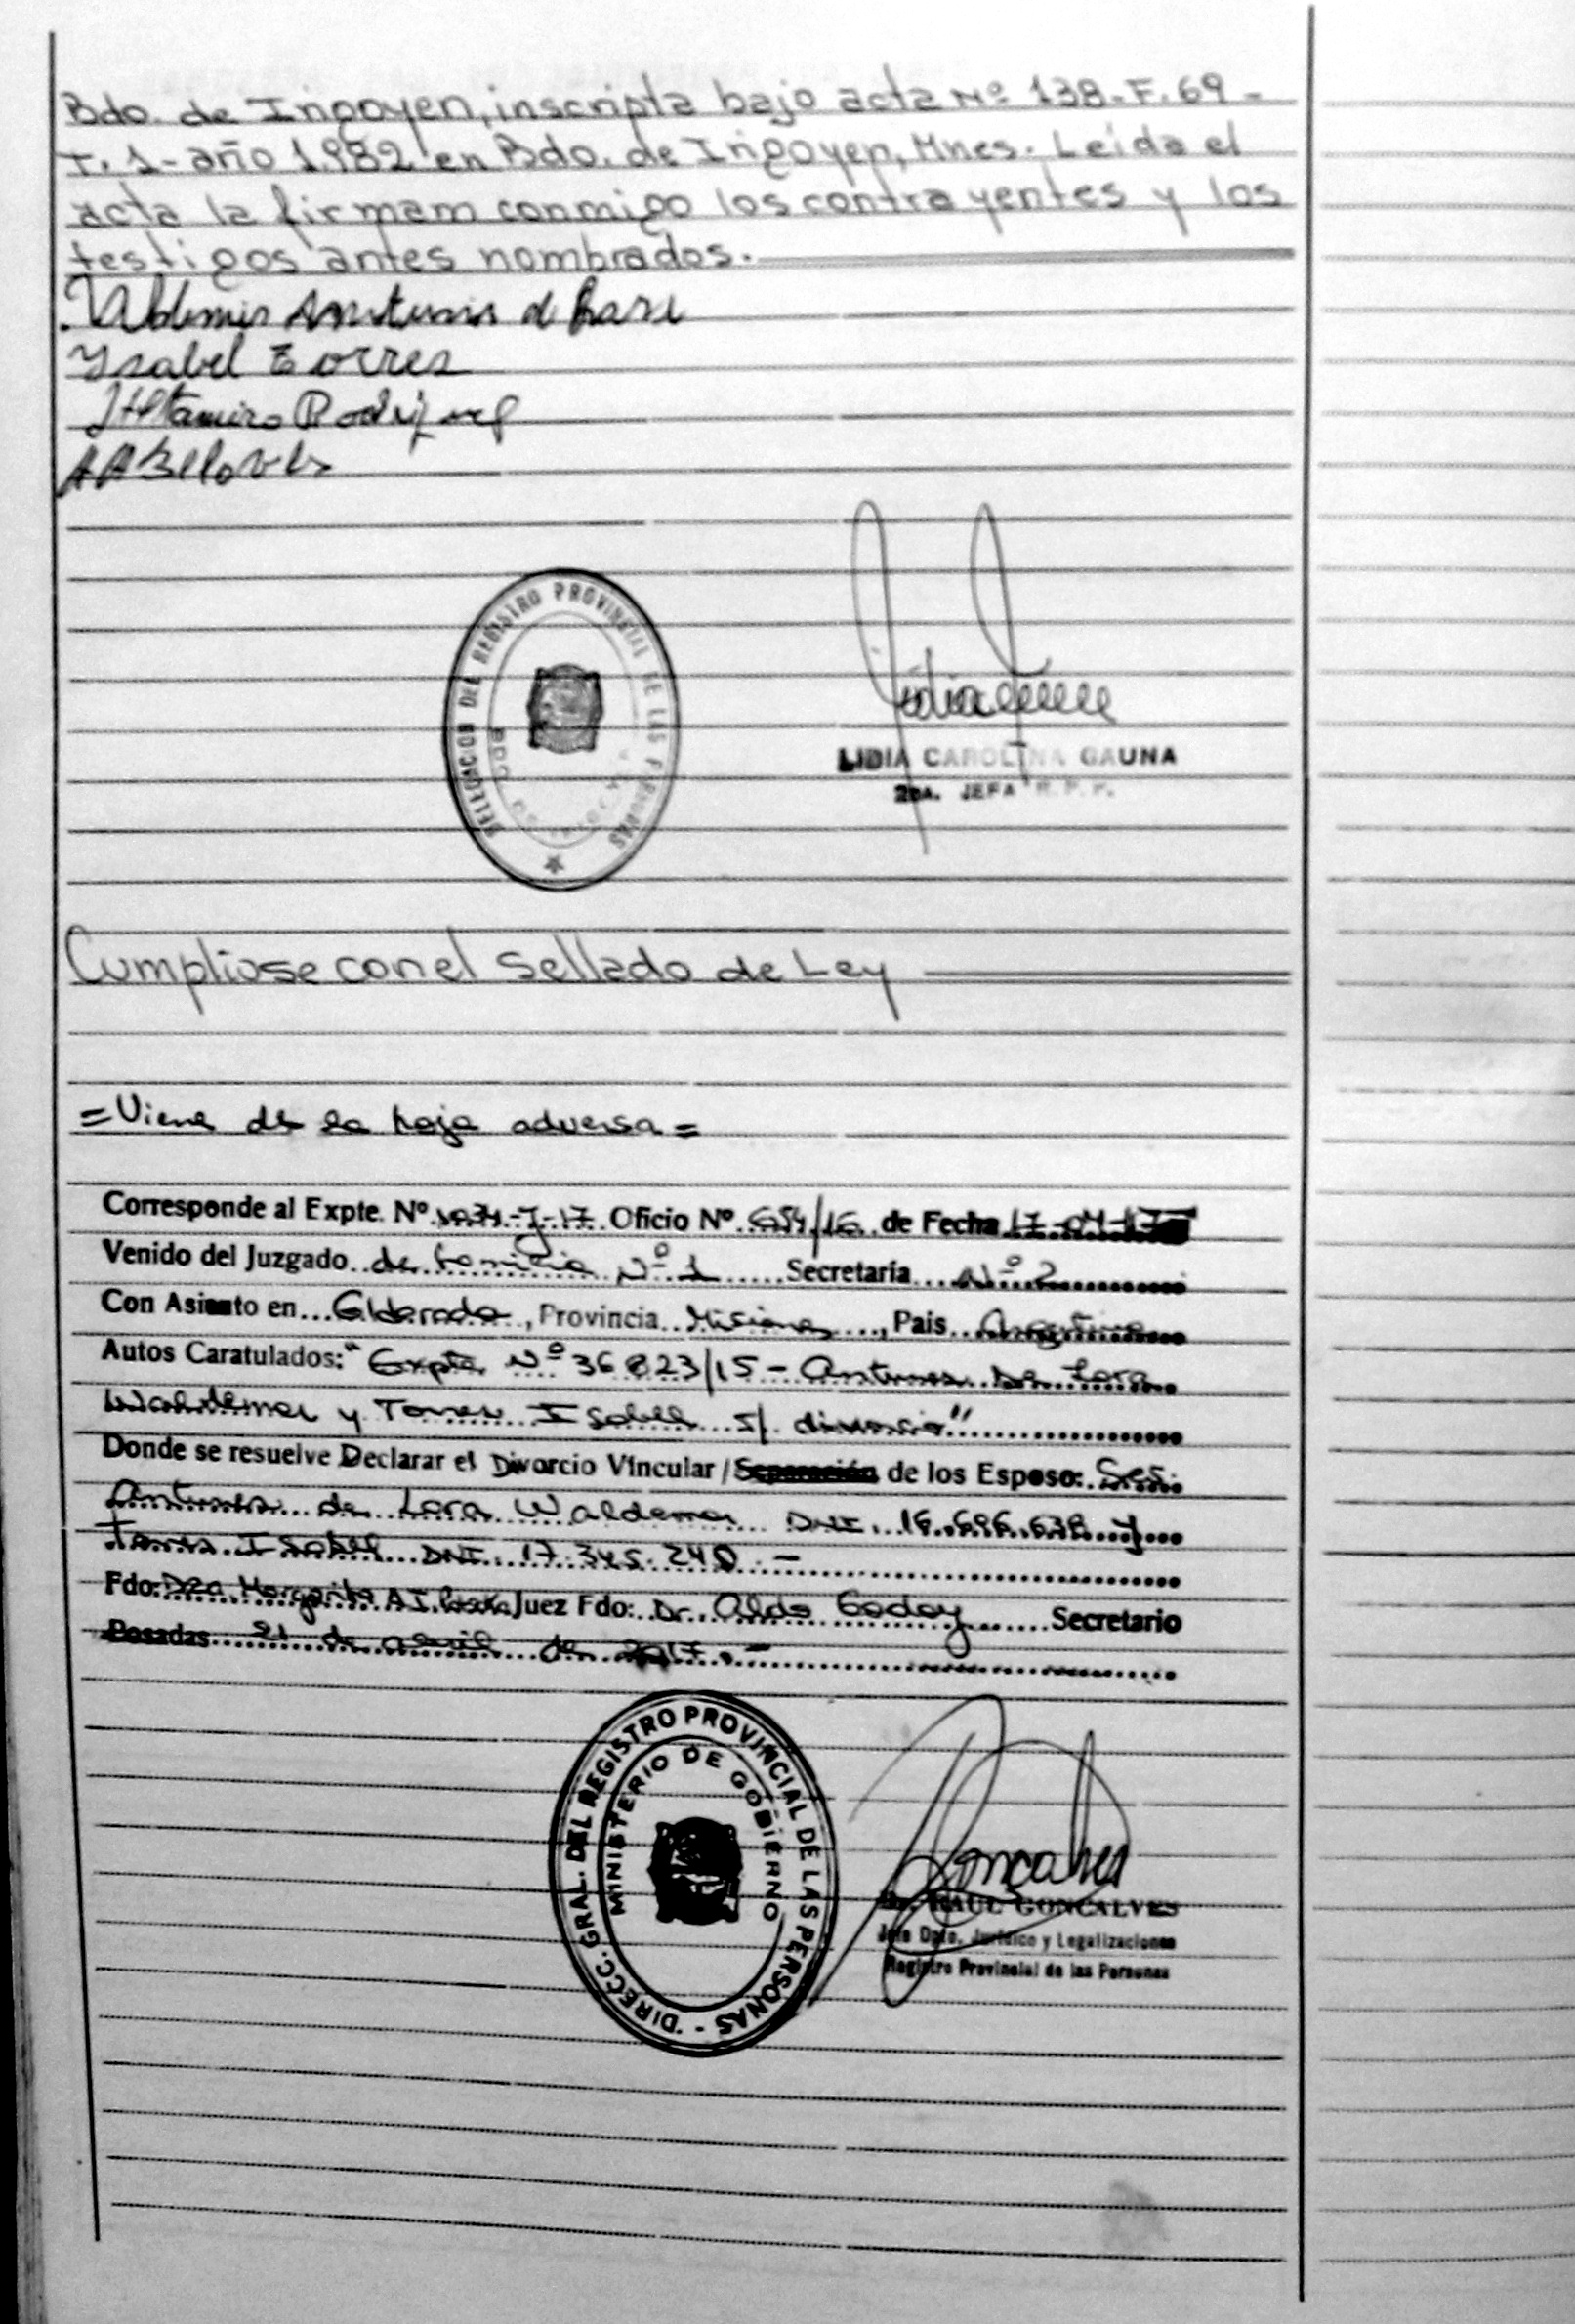 Bdo. de Irigoyen, inscripta bajo acta Nº 138-F.69-
T. 1- año 1.982 en Bdo. de Irigoyen, Mnes. Leída el
acta la firmam conmigo los contrayentes y los
testigos antes nombrados.
Ysabel Torres
DELEGACION DEL REGISTRO PROVINCIAL DE LAS PERSONAS
LIDIA CAROLINA GAUNA
2DA. JEFA R. P. P.
Cumpliose con el Sellado de Ley
=Viene de la hoja adversa=
Corresponde al Expte. Nº Oficio Nº 654/16 de Fecha 17-04-17
Venido del Juzgado de Familia Nº 1 Secretaría Nº 2
Con Asiento en Eldorado, Provincia Misiones, Pais Argentina
Autos Caratulados: "Expte Nº 36823/15 - Antunes De Lara
Waldemar y Torres Isabel s/ divorcio"
Donde se resuelve Declarar el Divorcio Vincular / Separación de los Esposo: Sres.
Antunes de Lara Waldemar DNI. 16.696.638 y
Torres Isabel DNI. 17.345.240.-
Fdo: Dra Margarita A Juez Fdo: Dr. Aldo Godoy Secretario
Posadas 21 de abril de 2017.-
DIRECC. GRAL. DEL REGISTRO PROVINCIAL DE LAS PERSONAS -
MINISTERIO DE GOBIERNO
Dr. RAUL GONCALVES
Jefe Dpto. Jurídico y Legalizaciones
Registro Provincial de las Personas